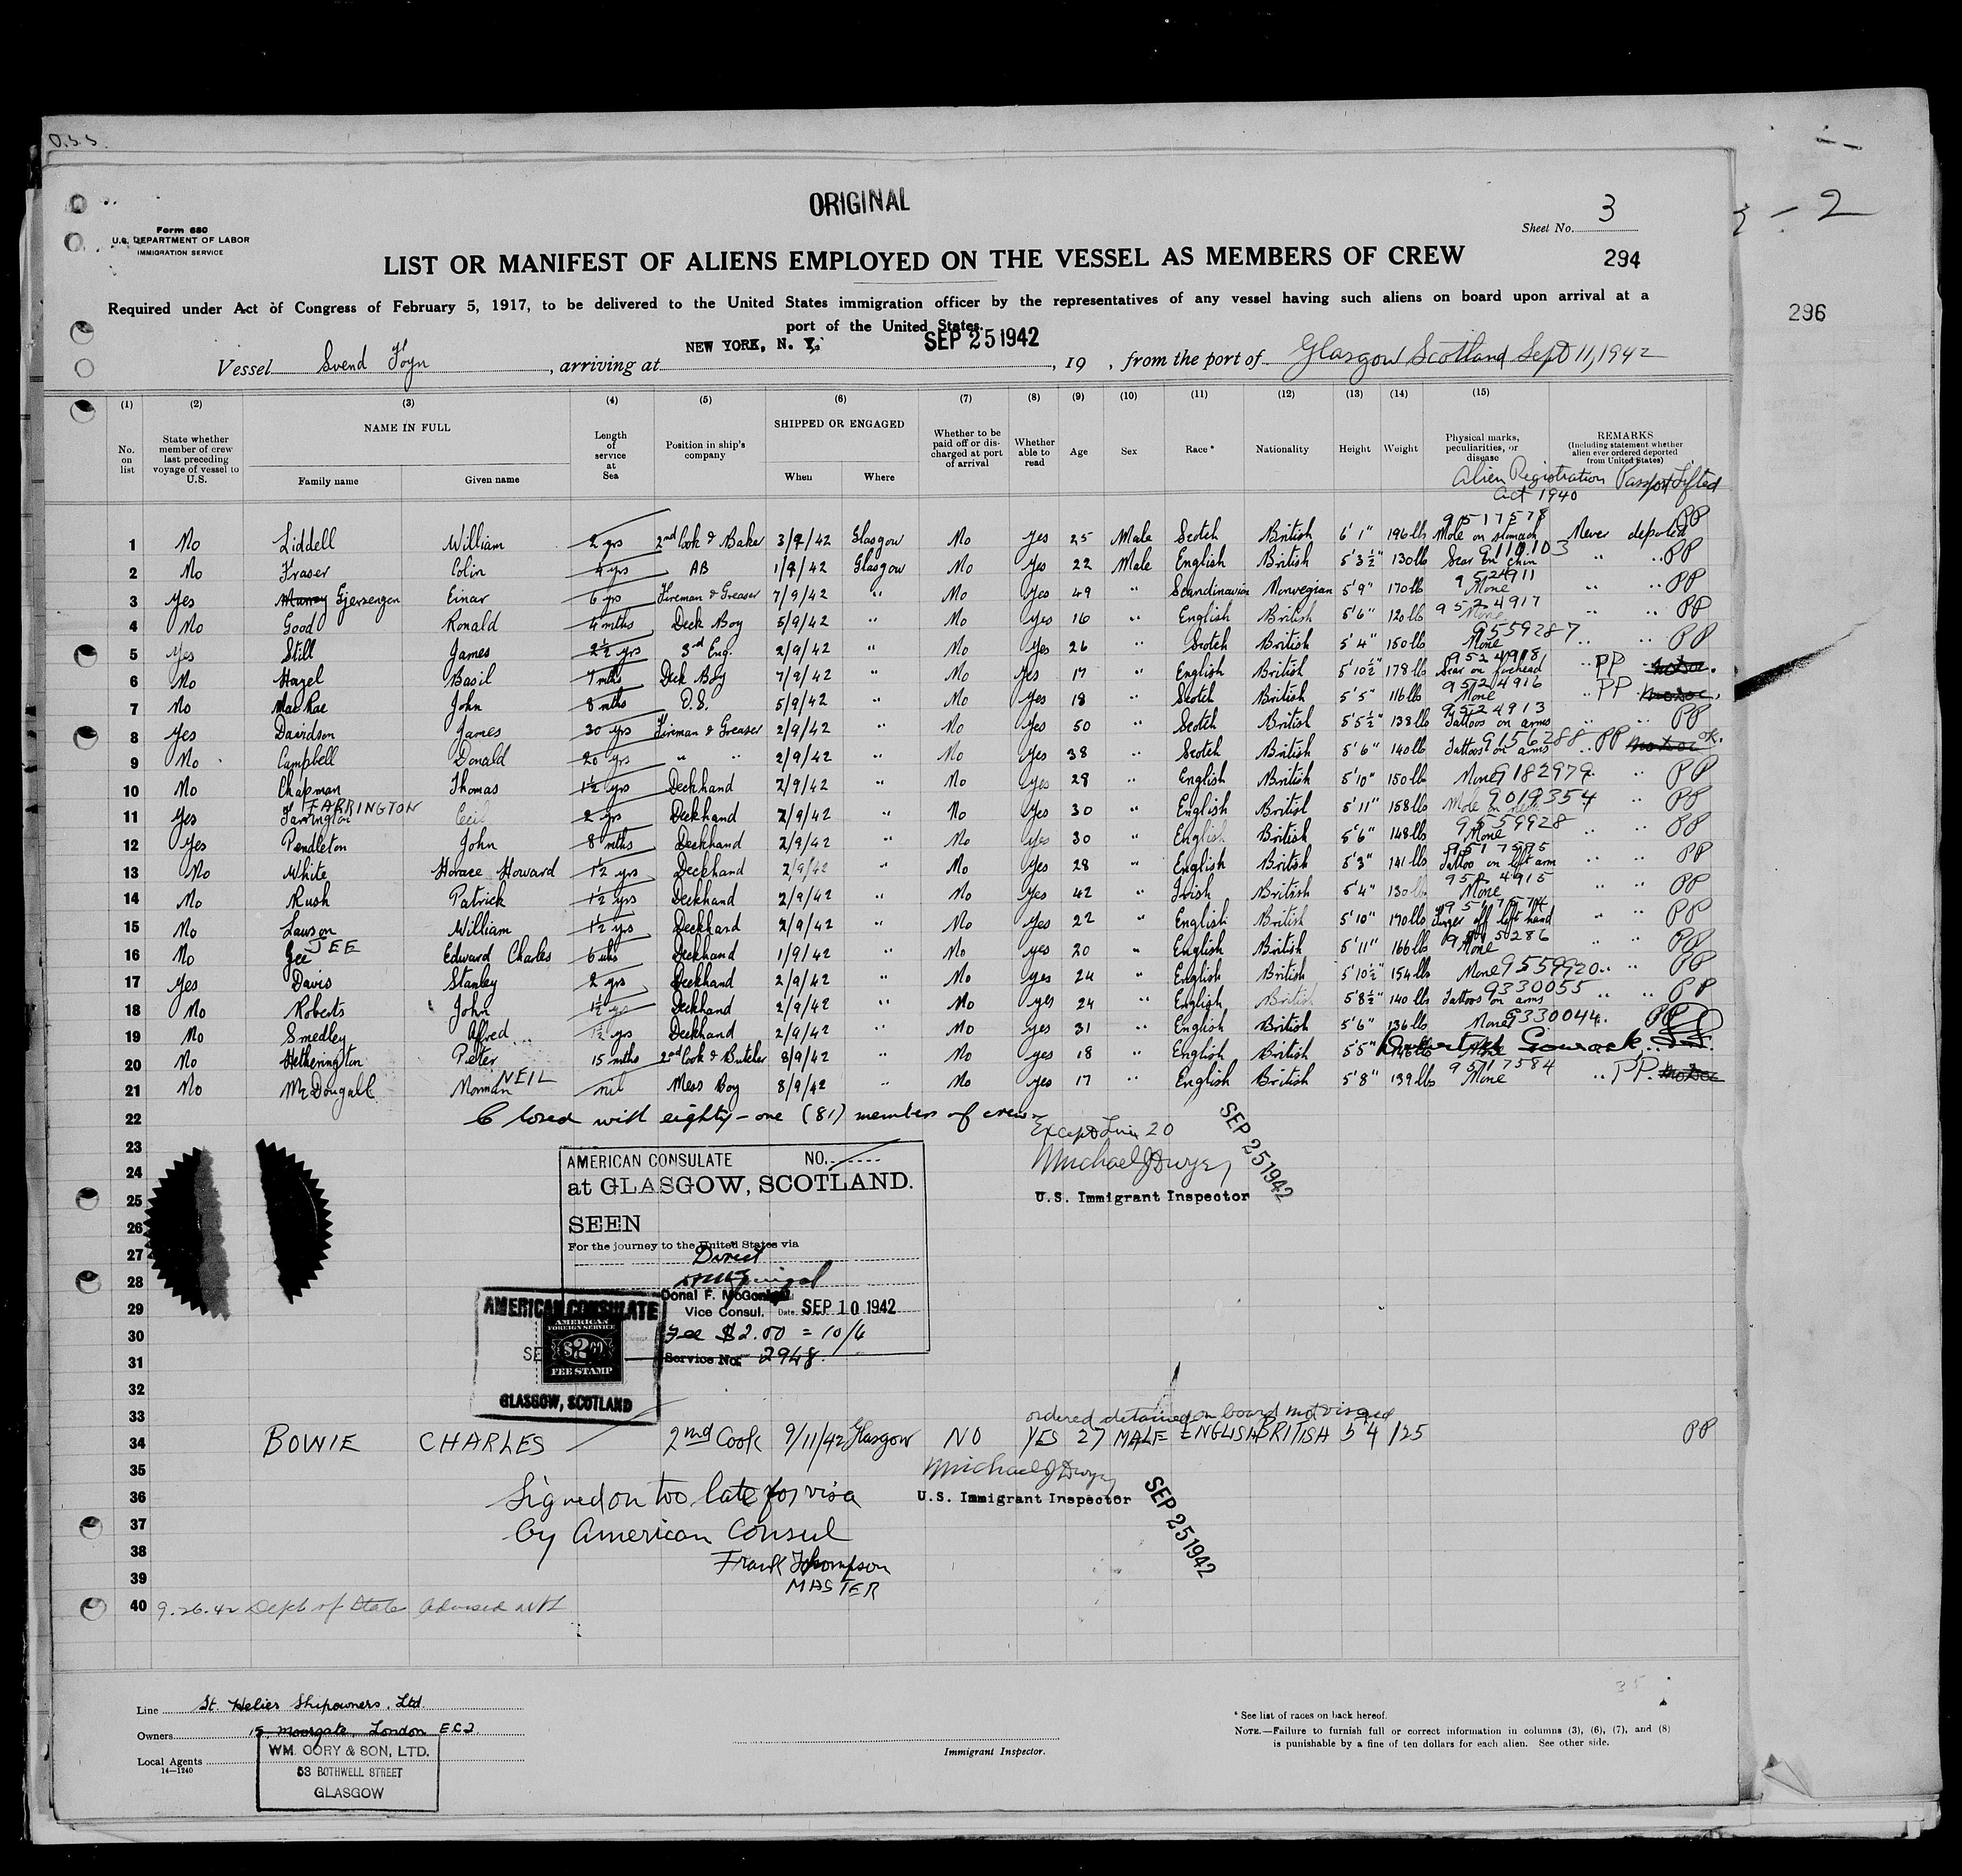 O.S.S.
ORIGINAL
Form 680
U.S. DEPARTMENT OF LABOR
IMMIGRATION SERVICE
Sheet No. 3
- 2
LIST OR MANIFEST OF ALIENS EMPLOYED ON THE VESSEL AS MEMBERS OF CREW
294
Required under Act of Congress of February 5, 1917, to be delivered to the United States immigration officer by the representatives of any vessel having such aliens on board upon arrival at a
port of the United States.
296
Vessel Svend Foyn, arriving at NEW YORK, N. Y. SEP 25 1942, 19 , from the port of Glasgow Scotland Sept 11, 1942
(1) (2) (3) (4) (5) (6) (7) (8) (9) (10) (11) (12) (13) (14) (15)
No. on list
State whether member of crew last preceding voyage of vessel to U.S.
NAME IN FULL
Family name Given name
Length of service at Sea
Position in ship's company
SHIPPED OR ENGAGED
When Where
Whether to be paid off or discharged at port of arrival
Whether able to read
Age Sex Race* Nationality Height Weight
Physical marks, peculiarities, or disease
REMARKS
(Including statement whether alien ever ordered deported from United States)
Alien Registration Act 1940 Passport Lifted
1 No Liddell William 2 yrs 2nd Cook & Baker 3/9/42 Glasgow No Yes 25 Male Scotch British 6'1" 196 lbs Mole on stomach 9517578 Never deported PP
2 No Fraser Colin 4 yrs AB 1/9/42 Glasgow No Yes 22 Male English British 5'3½" 130 lb Scar on chin " " PP
3 Yes Murray Gjersengen Einar 6 yrs Fireman & Greaser 7/9/42 " No Yes 49 " Scandinavian Norwegian 5'9" 170 lb None 9524911 " " PP
4 No Good Ronald 4 mths Deck Boy 5/9/42 " No Yes 16 " English British 5'6" 120 lb None 9524917 " " PP
5 Yes Still James 2½ yrs 3rd Eng. 2/9/42 " No Yes 26 " Scotch British 5'4" 150 lb None 9559287 " PP
6 No Hazel Basil 7 mths Deck Boy 7/9/42 " No Yes 17 " English British 5'10½" 178 lb Scar on forehead 9524918 " PP no doc.
7 No MacRae John 8 mths O.S. 5/9/42 " No Yes 18 " Scotch British 5'5" 116 lb None 9524916 " PP no doc.
8 Yes Davidson James 30 yrs Fireman & Greaser 2/9/42 " No Yes 50 " Scotch British 5'5½" 138 lb Tattoos on arms 9524913 " " PP
9 No Campbell Donald 20 yrs " " 2/9/42 " No Yes 38 " Scotch British 5'6" 140 lb Tattoos on arms 9156288 " PP no doc ok.
10 No Chapman Thomas 1½ yrs Deckhand 2/9/42 " No Yes 29 " English British 5'10" 150 lbs None 9182979 " " PP
11 Yes Farrington FARRINGTON Cecil 2 yrs Deckhand 2/9/42 " No Yes 30 " English British 5'11" 158 lbs Mole on 9019354 " PP
12 Yes Pendleton John 8 mths Deckhand 2/9/42 " No Yes 30 " English British 5'6" 148 lbs None 9559928 " " PP
13 No White Horace Howard 1½ yrs Deckhand 2/9/42 " No Yes 28 " English British 5'3" 141 lbs Tattoo on left arm " " PP
14 No Rush Patrick 1½ yrs Deckhand 2/9/42 " No Yes 42 " Irish British 5'4" 130 lb None " " PP
15 No Lawson William 1½ yrs Deckhand 2/9/42 " No Yes 22 " English British 5'10" 170 lbs Finger off left hand " " PP
16 No Gee JEE Edward Charles 6 Deckhand 1/9/42 " No yes 20 " English British 5'11" 166 lbs None " " PP
17 Yes Davis Stanley 2 yrs Deckhand 2/9/42 " No yes 24 " English British 5'10½" 154 lbs None 9559920 " " PP
18 No Roberts John 1½ yrs Deckhand 2/9/42 " No yes 24 " English British 5'8½" 140 lbs Tattoos on arms 9330055 " " PP
19 No Smedley Alfred 1½ yrs Deckhand 2/9/42 " No yes 31 " English British 5'6" 136 lbs None 9330044 " PP
20 No Hetherington Peter 15 mths 2nd Cook & Butcher 8/9/42 " No yes 18 " English British 5'5" Gourock
21 No McDougall Norman NEIL nil Mess Boy 8/9/42 " No yes 17 " English British 5'8" 139 lbs None 9517584 " PP. no doc
22 Closed with eighty-one (81) members of crew
Except Line 20
Michael J Dwyer
U.S. Immigrant Inspector
SEP 25 1942
23
24
25
26
27
28
29
30
31
32
33
AMERICAN CONSULATE NO.
at GLASGOW, SCOTLAND.
SEEN
For the journey to the United States via
Direct
Donal F. McGonigal
Vice Consul. Date SEP 10 1942
Fee $2.00 = 10/6
Service No. 2948.
AMERICAN CONSULATE
AMERICAN
FOREIGN SERVICE
$2.00
FEE STAMP
GLASGOW, SCOTLAND
ordered detained on board not visaed
34 BOWIE CHARLES 2nd Cook 9/11/42 Glasgow NO YES 27 MALE ENGLISH BRITISH 5 4 125 PP
35
36
37
38
39
Michael J Dwyer
U.S. Immigrant Inspector
SEP 25 1942
Signed on too late for visa
by American Consul
Frank Thompson
MASTER
40 9.26.42 Dept of State advised
Line St. Helier Shipowners, Ltd.
Owners 15, Moorgate, London E.C.2.
Local Agents
14—1240
WM. CORY & SON, LTD.
53 BOTHWELL STREET
GLASGOW
Immigrant Inspector.
* See list of races on back hereof.
NOTE.—Failure to furnish full or correct information in columns (3), (6), (7), and (8)
is punishable by a fine of ten dollars for each alien. See other side.